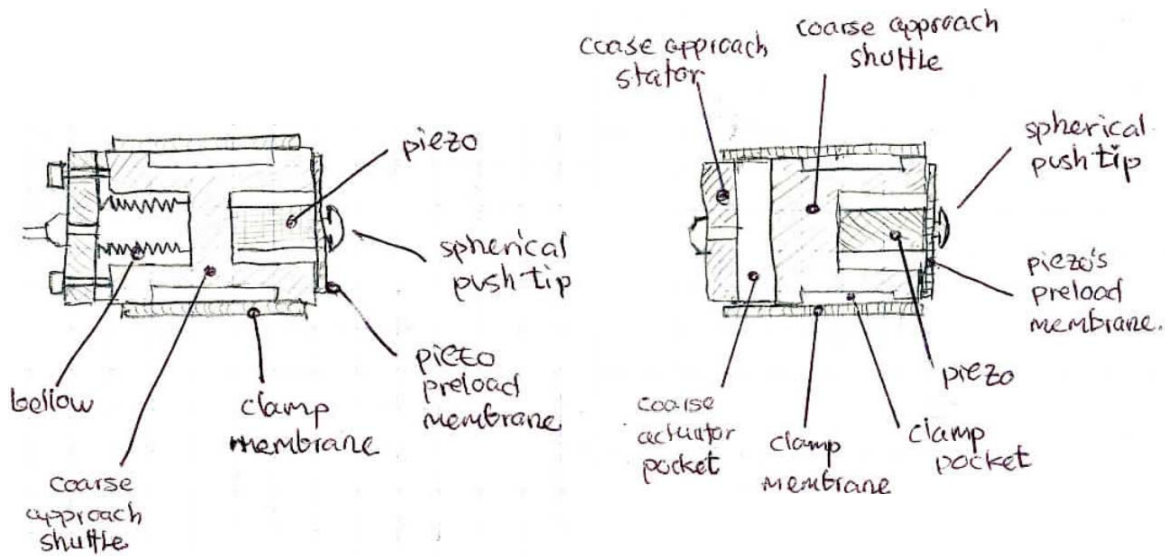 piezo
spherical
push tip
piezo
preload
membrane
clamp
membrane
bellow
coarse
approach
shuttle
coase approach
stator
coarse approach
shuttle
spherical
push tip
piezo's
preload
membrane.
piezo
clamp
pocket
clamp
membrane
coarse
actuator
pocket